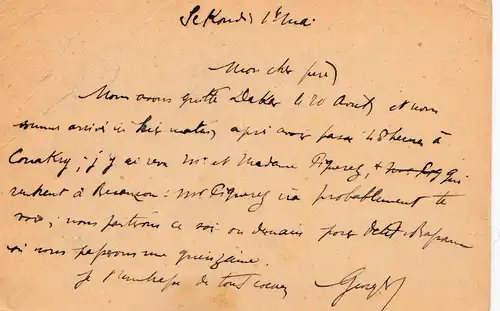 Sekondi 1er Mai
Mon cher père,
Nous avons quitté Dakar le 20 Avril, et nous
sommes arrivés ici hier matin, après avoir passé 48 heures à
Conakry; j'y ai vu Mr et Madame Piquerez, qui
rentrent à Besançon: Mr Piquerez ira probablement te
voir; nous partirons ce soir ou demain pour Petit Bassam
où nous passerons une quinzaine.
Je t'embrasse de tout coeur
Georges